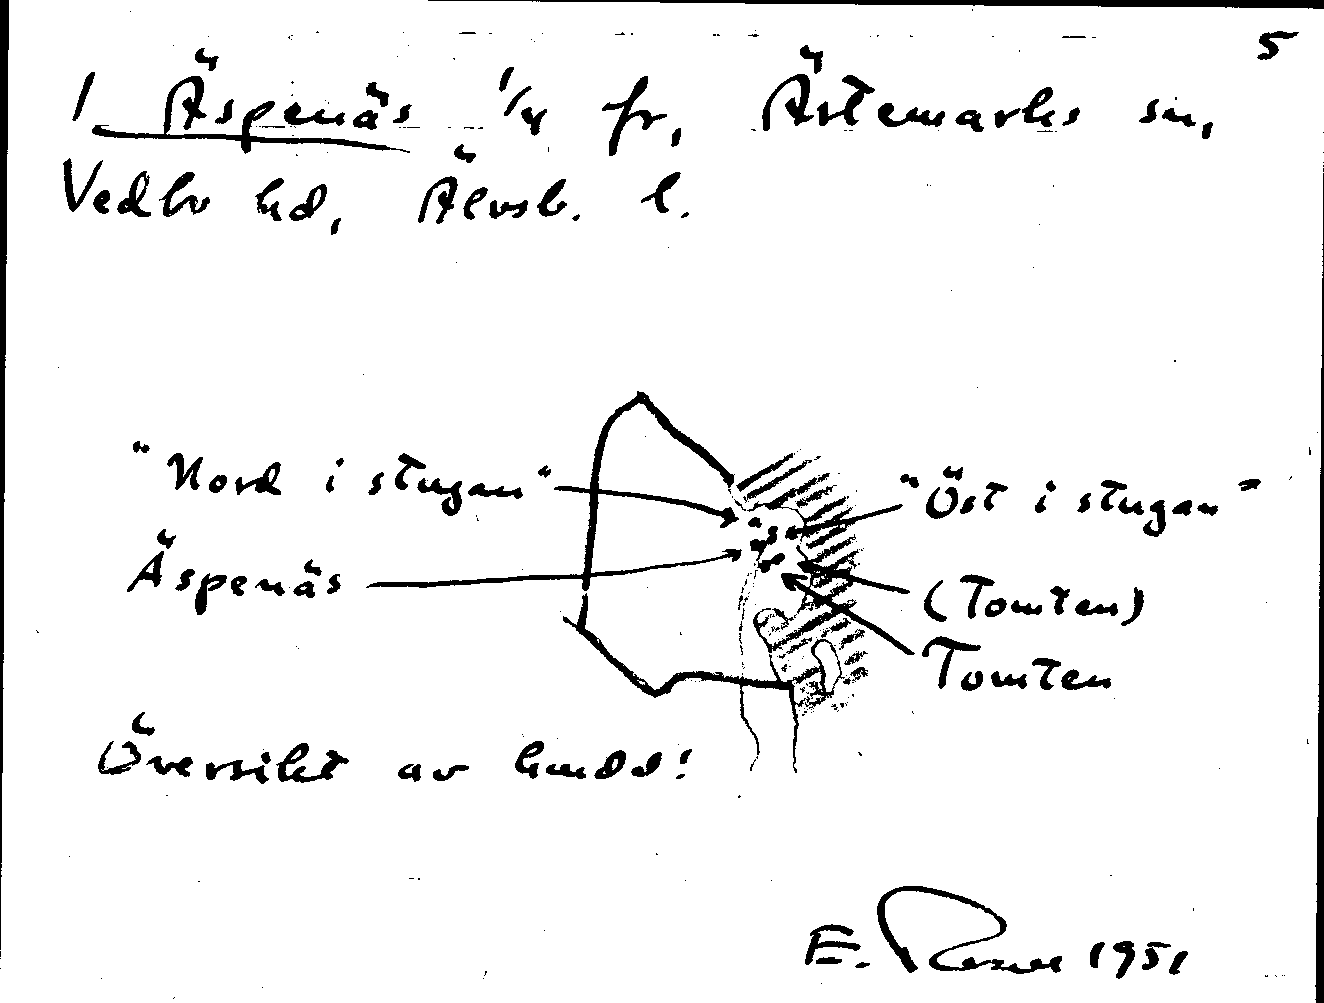 5
1 Äspenäs 1/4 fr, Ärtemarks sn,
Vedbo hd, Älvsb. l.
"Nord i stugan"
"Öst i stugan"
Äspenäs
(Tomten)
Tomten
Översikt av
E. 1951